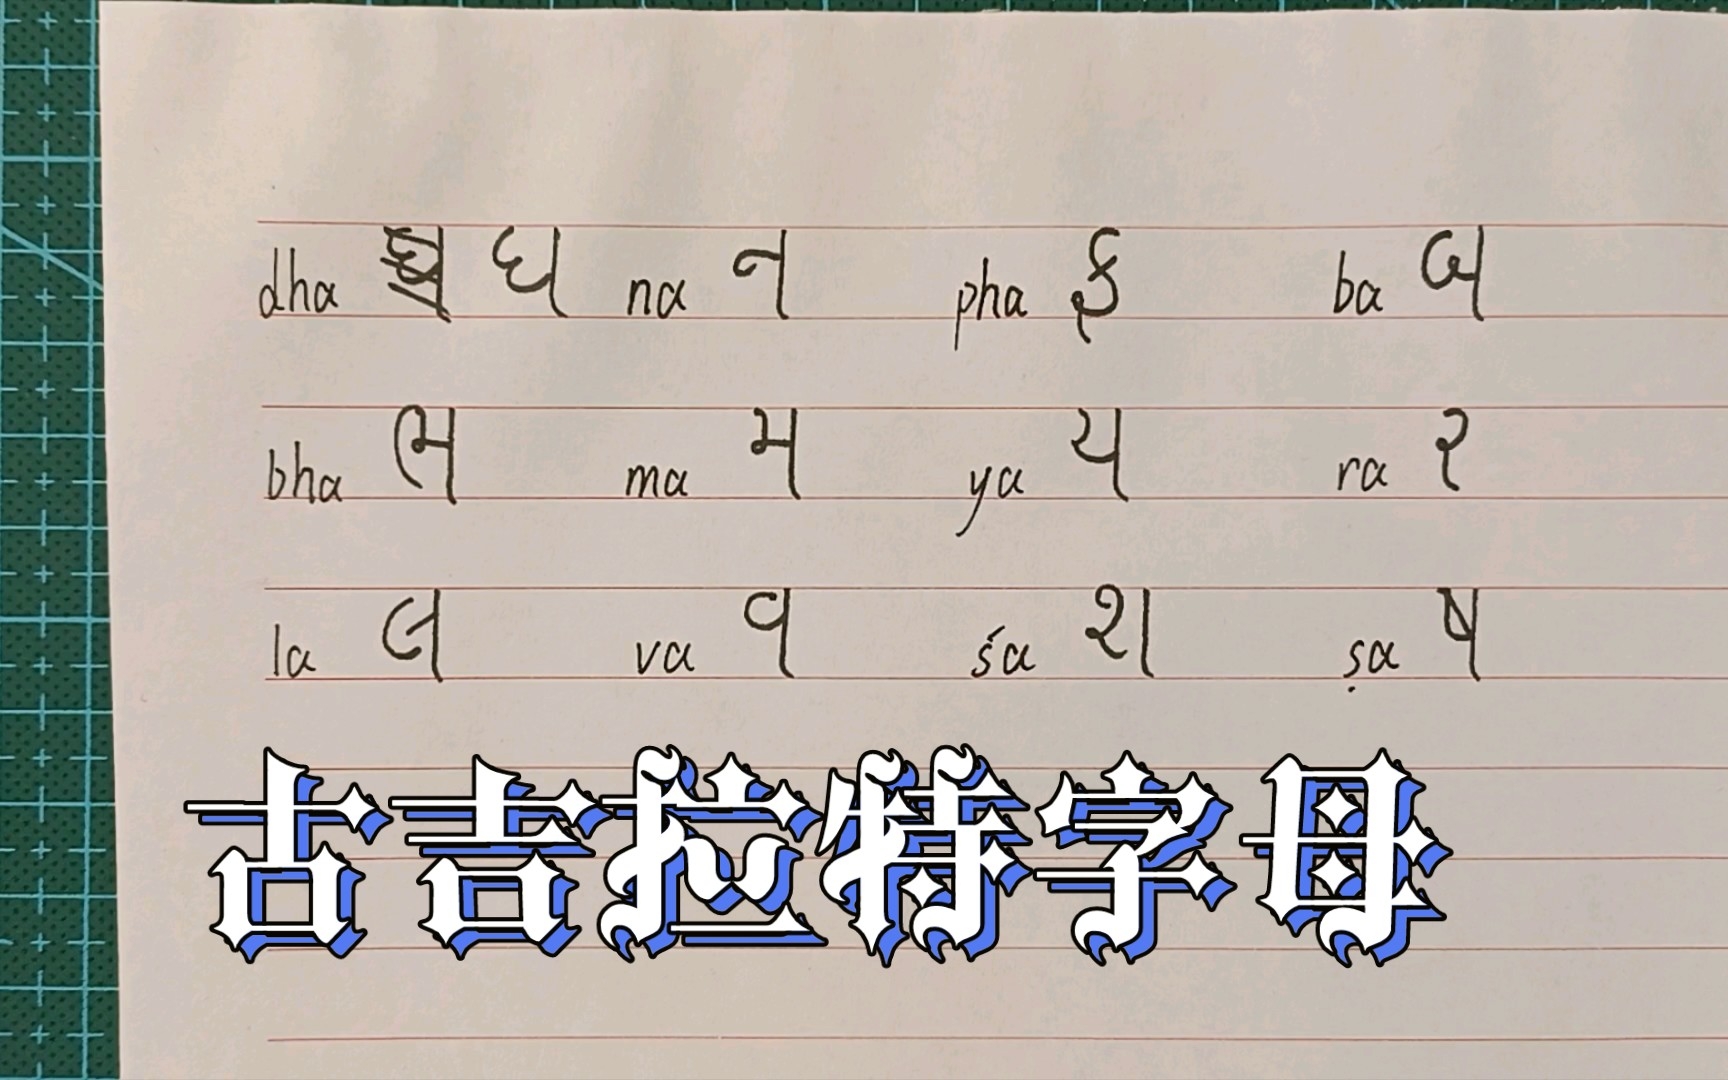 dha ધ na ન pha ફ ba બ
bha ભ ma મ ya ય ra ર
la લ va વ śa શ ṣa ષ
古吉拉特字母